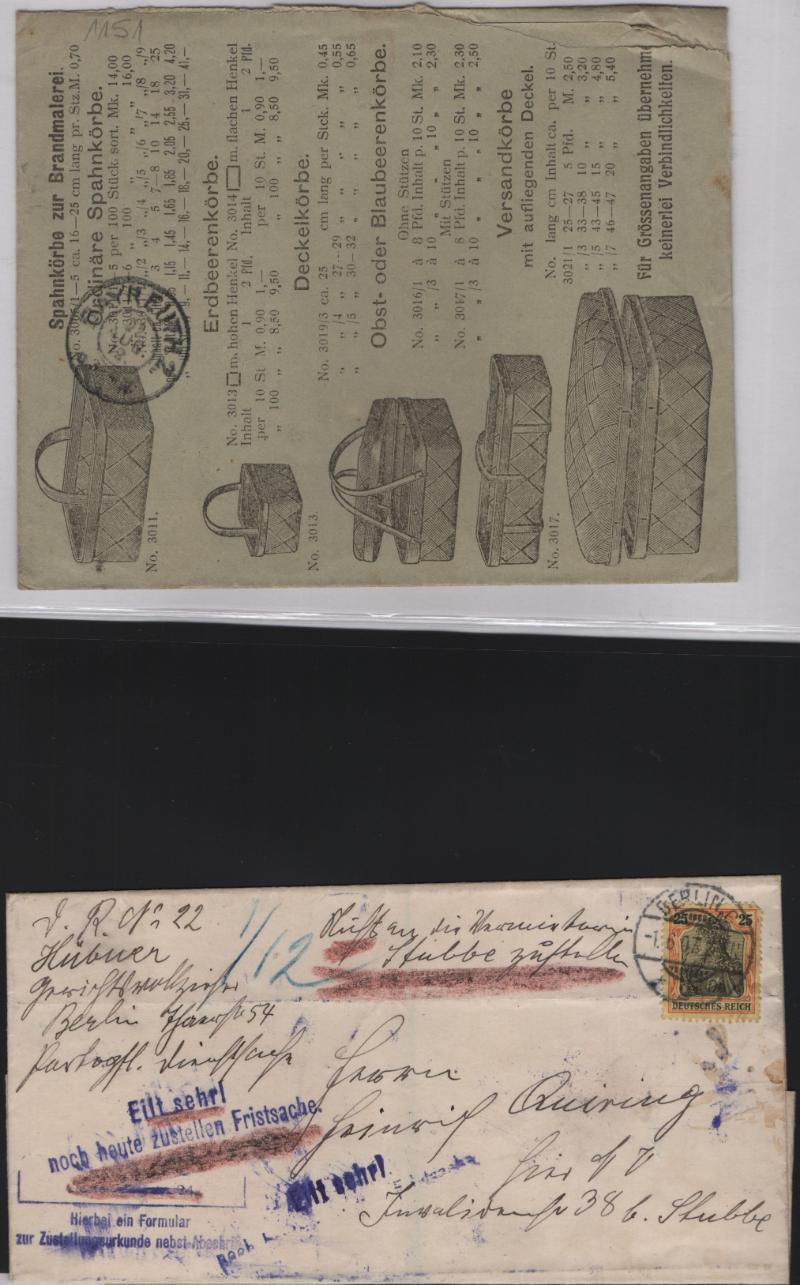 1151
Spahnkörbe zur Brandmalerei.
ca. 16—25 cm lang pr. Stz. M. 0,70
Ordinäre Spahnkörbe.
5 per 100 Stück sort. Mk. 14,00
6 „ 100 „ „ „ 16,00
„/2 „/3 „/4 „/5 „/6 „/7 „/8 „/9
3 4 5 7—8 10 14 18 25
1,15 1,45 1,65 1,85 2,05 2,55 3,20 4,20
11,— 14,— 16,— 18,— 20,— 25,— 31,— 41,—
Erdbeerenkörbe.
No. 3013 m. hohen Henkel No. 3014 m. flachen Henkel
Inhalt 1 2 Pfd. Inhalt 1 2 Pfd.
per 10 St M. 0,90 1,— per 10 St M. 0,90 1,—
„ 100 „ „ 8,50 9,50 „ 100 „ „ 8,50 9,50
Deckelkörbe.
No. 3019/3 ca. 25 cm lang per Stck. Mk. 0,45
„ „ /4 „ 27—29 „ „ „ „ „ 0,55
„ „ /5 „ 30—32 „ „ „ „ „ 0,65
Obst- oder Blaubeerenkörbe.
Ohne Stützen
No. 3016/1 à 8 Pfd. Inhalt p. 10 St. Mk. 2,10
„ „ /3 à 10 „ „ „ 10 „ „ 2,30
Mit Stützen
No. 3017/1 à 8 Pfd. Inhalt p. 10 St. Mk. 2,30
„ „ /3 à 10 „ „ „ 10 „ „ 2,50
Versandkörbe
mit aufliegenden Deckel.
No. lang cm Inhalt ca. per 10 St.
3021/1 25—27 5 Pfd. M. 2,50
„ /3 33—38 10 „ „ 3,20
„ /5 43—45 15 „ „ 4,80
„ /7 46—47 20 „ „ 5,40
Für Grössenangaben übernehme
keinerlei Verbindlichkeiten.
No. 3011.
No. 3013.
No. 3017.
D. R. No 22
Hübner
Gerichtsvollzieher
Berlin Thaerstr 54
Portopfl. Dienstsache
1/12
an die Vermieterin
Stubbe zustellen
BERLIN
25 25
DEUTSCHES REICH
Herrn
Heinrich Quiring
hier N V
Invalidenstr 38 b. Stubbe
Eilt sehr!
noch heute zustellen Fristsache.
Eilt sehr!
Hierbei ein Formular
zur Zustellungsurkunde nebst Abschrift